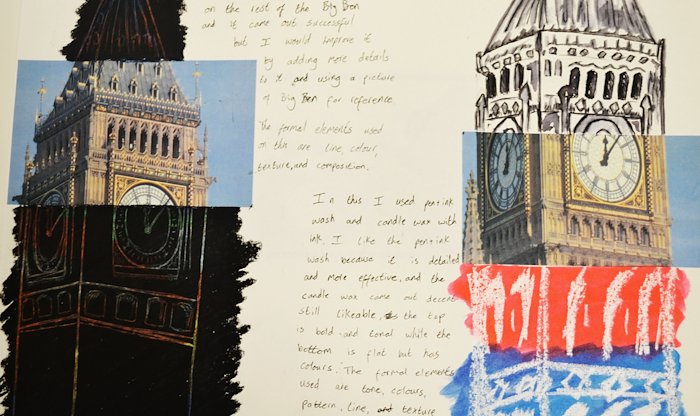 on the rest of the Big Ben
and it came out successful
but I would improve it
by adding more details
to it and using a picture
of Big Ben for reference.
The formal elements used
on this are line, colour,
texture, and composition.
In this I used pen+ink
wash and candle wax with
ink. I like the pen+ink
wash because it is detailed
and more effective, and the
candle wax came out decent
still likeable, as the top
is bold and tonal while the
bottom is flat but has
colours. The formal elements
used are tone, colours,
pattern, line, and texture